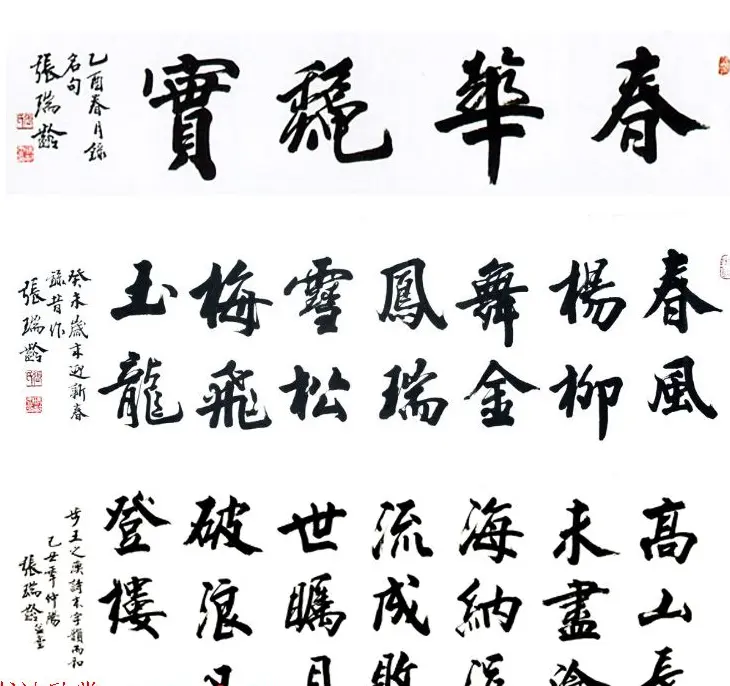 春華龝實
乙酉春月錄
名句
張瑞齡
春風
楊柳
舞金
鳳瑞
雪松
梅飛
玉龍
癸未歲末迎新春
錄昔作
張瑞齡
高山長
未盡
海納
流成敗
世矚目
破浪
登樓
步王之渙詩末字韻而和
乙丑年仲陽
張瑞齡並書